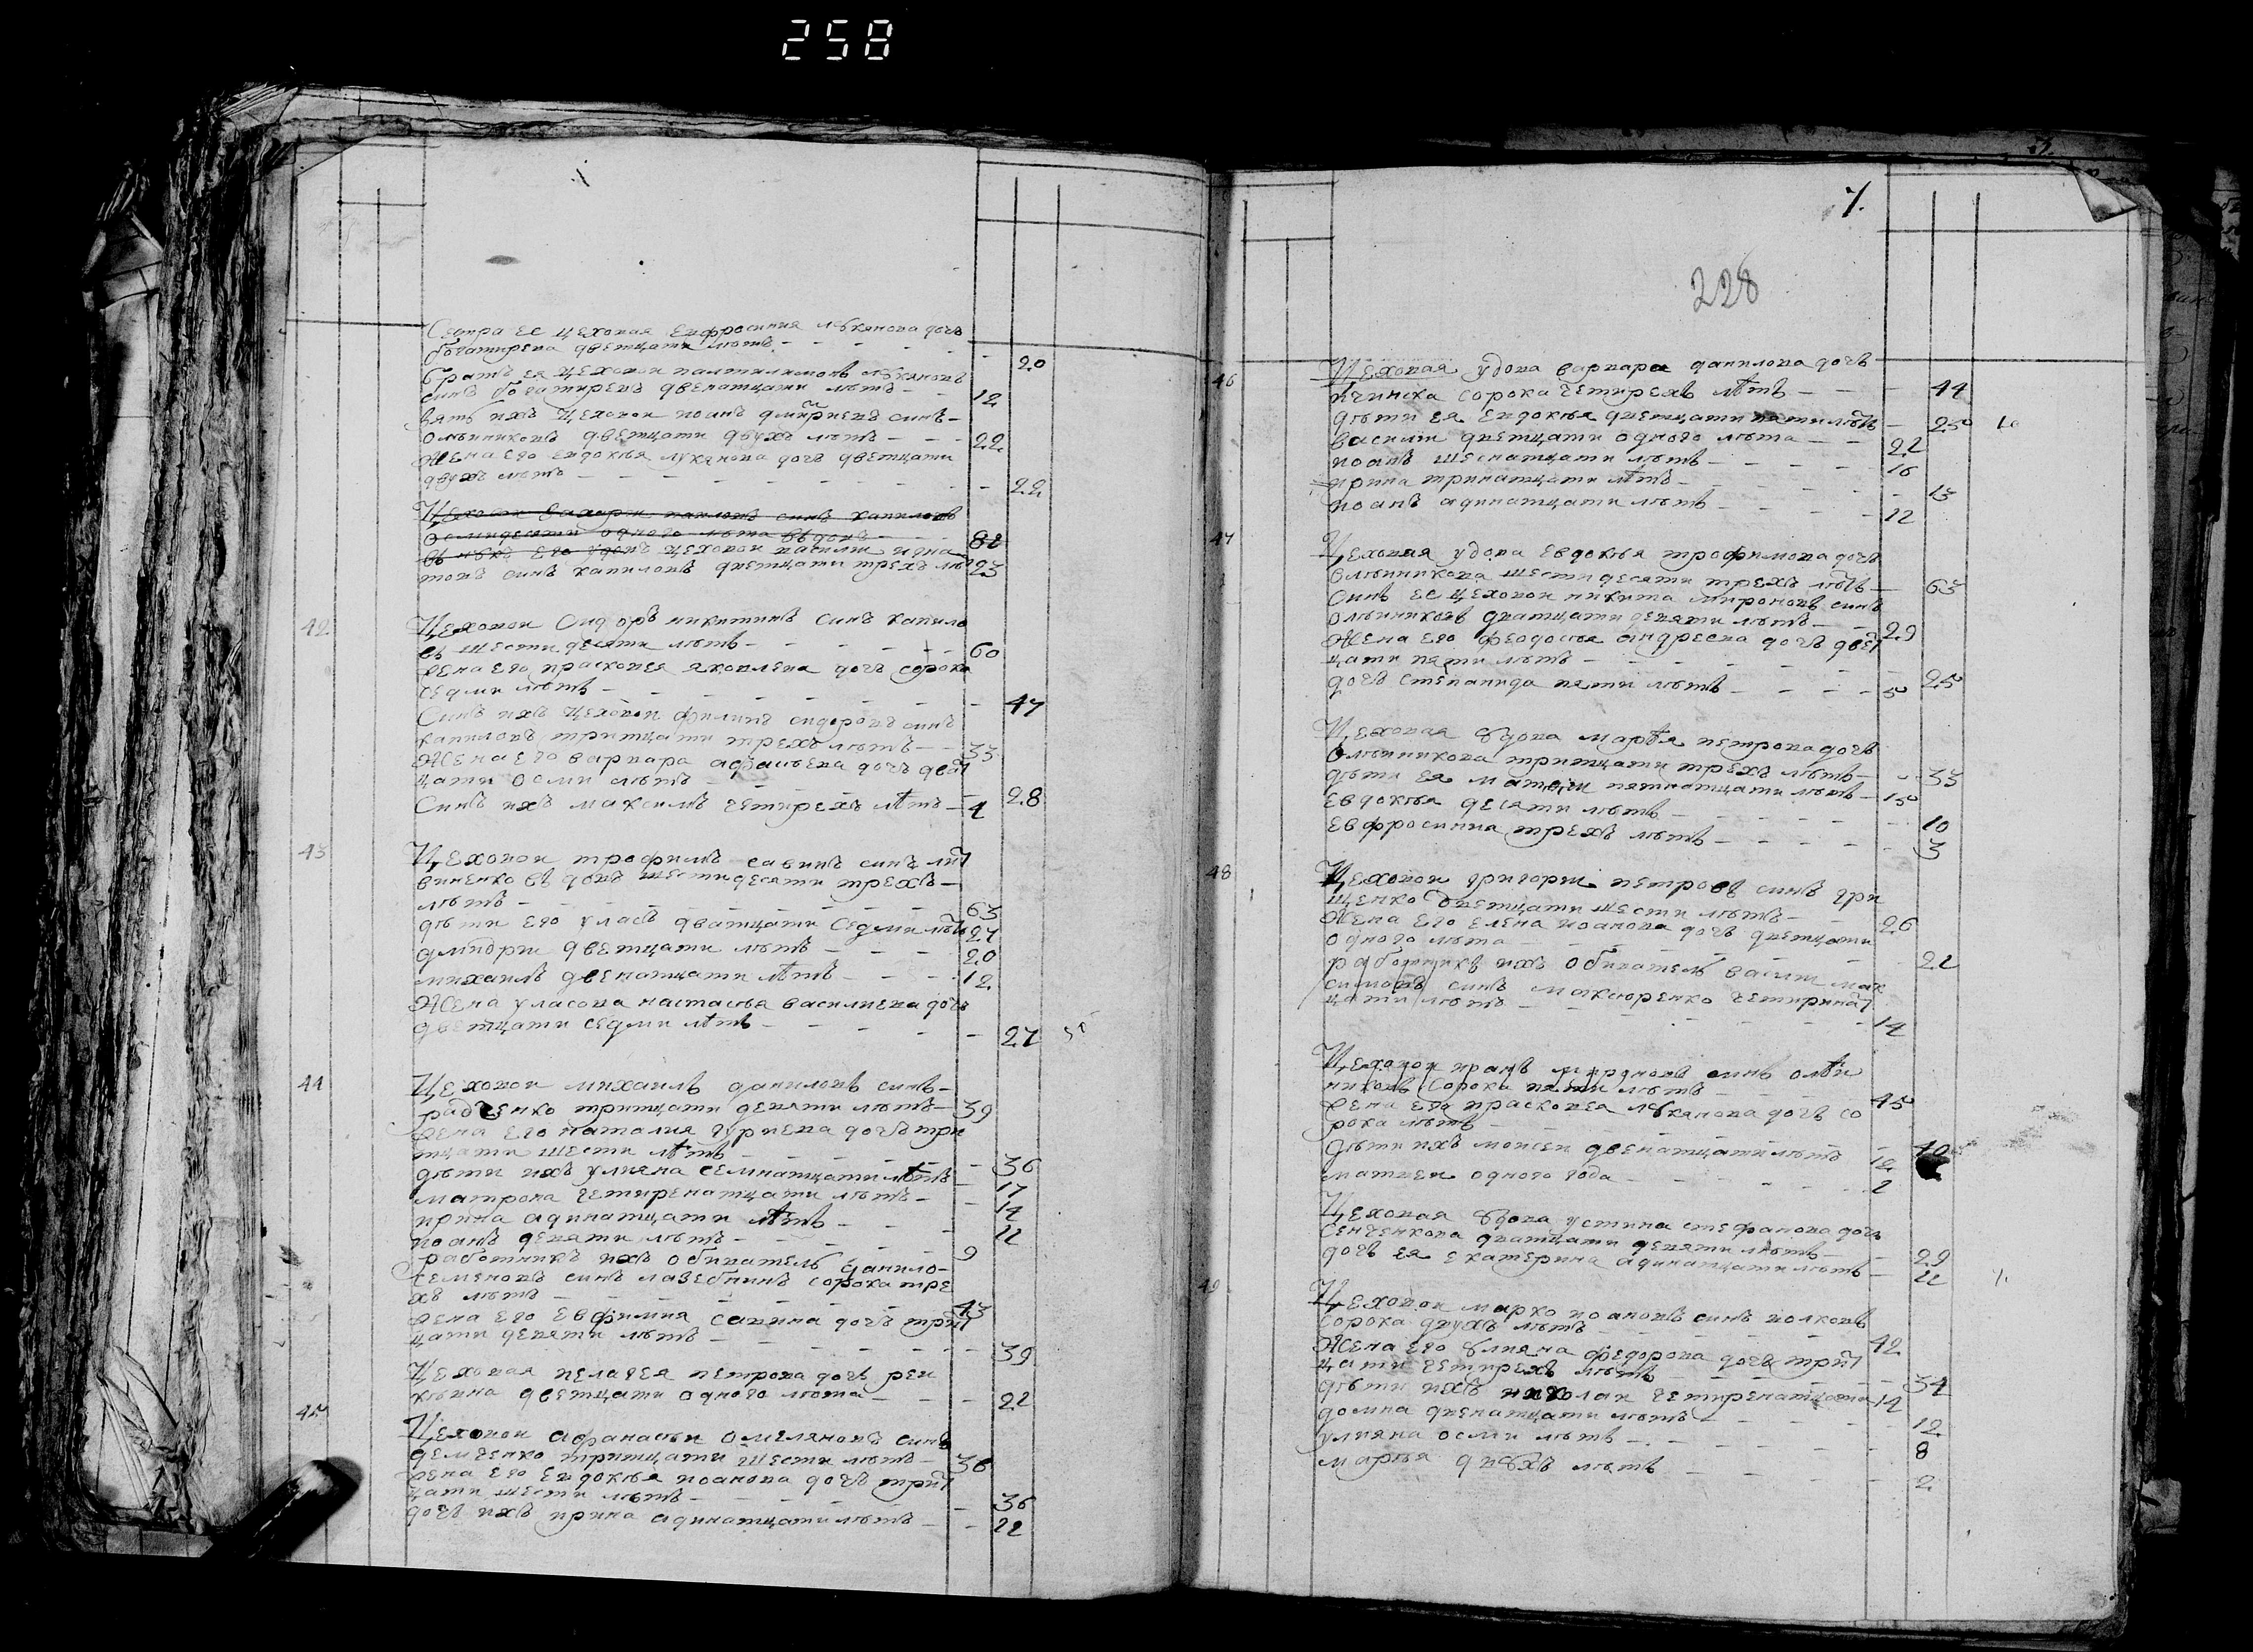 258
7.
228
Сестра ее цеховая Евфросиния лꙋкянова дочъ
богатирева дветцати лѣтъ 20
братъ ея цеховои пантилимонъ лꙋкяновъ
синъ богатиревъ двенатцати лѣтъ 12
зять ихъ цеховои иоанъ дмитриевъ синъ
олѣиниковъ дветцати двухъ лѣтъ 22
Жена его евдокѣя лукянова дочъ дветцати
двухъ лѣтъ 22
Цеховои захари павловъ синъ капиловъ
осмидесяти одного лѣта вдовъ 81
внукъ его удовъ цеховои василии игна
товъ синъ капиловъ дветцати трехъ лѣ 23
42 Цеховои Сидоръ никитинъ синъ капило
въ шестидесяти лѣтъ 60
Жена его прасковея яковлева дочъ сорока
седми лѣтъ 47
Синъ ихъ цеховои филипъ сидоровъ синъ
капиловъ тритцати трехъ лѣтъ 33
Жена его варвара афанъева дочъ дват
цати осми лѣтъ 28
Синъ ихъ максимъ четирехъ лѣтъ 4
43 Цеховои трофимъ савинъ синъ лит
виненко вдовъ шестидесяти трехъ
лѣтъ 63
дѣти его уласъ дватцати седми лѣтъ 27
дмитри дветцати лѣтъ 20
михаилъ двенатцати лѣтъ 12
Жена уласова настасѣя василиева дочъ
дветцати седми лѣтъ 27
44 Цеховои михаилъ даниловъ синъ
радченко тритцати девяти лѣтъ 39
Жена его наталия гуриева дочъ три
тцати шести лѣтъ 36
дѣти ихъ улияна семнатцати лѣтъ 17
матрона четиренатцати лѣтъ 14
ирина адинатцати лѣтъ 11
иоанъ девяти лѣтъ 9
работникъ ихъ обиватель данило
семеновъ синъ лазебнинъ сорока тре
хъ лѣтъ 43
Жена его евфимия савина дочъ трит
цати девяти лѣтъ 39
Цеховая пелагея петрова дочъ
дветцати одного лѣта 21
45 Цеховои афанасѣи омеляновъ синъ
демченко тритцати шести лѣтъ 36
Жена его евдокѣя иоанова дочъ трит
цати шести лѣтъ 36
дочъ ихъ ирина адинатцати лѣтъ 11
46 Цеховая удова варвара данилова дочъ
сорока четирехъ лѣтъ 44
дѣти ея евдокѣя дветцати пяти лѣтъ 25
василии дветцати одного лѣта 21
иоанъ шеснатцати лѣтъ 16
ирина тринатцати лѣтъ 13
иоанъ адинатцати лѣтъ 11
47 Цеховая удова Евдокѣя трофимова дочъ
олѣиникова шестидесяти трехъ лѣтъ 63
Синъ ее цеховои никита мироновъ синъ
олѣиниковъ дватцати девяти лѣтъ 29
Жена его феодосѣя андреева дочъ двет
цати пяти лѣтъ 25
дочъ степанида пяти лѣтъ 5
Цеховая вдова марѳя петрова дочъ
олѣиникова тритцати трехъ лѣтъ 33
дѣти ея матвѣи пятнатцати лѣтъ 15
Евдокѣя десяти лѣтъ 10
евфросиния трехъ лѣтъ 3
48 Цеховои григории петровъ синъ гри
щенко дветцати шести лѣтъ 26
Жена его елена иоанова дочъ дветцати
одного лѣта 21
работникъ ихъ обиватель васили мак
симовъ синъ максюренко четиринат
цати лѣтъ 14
Цеховои иванъ мироновъ синъ олѣи
никовъ сорока пяти лѣтъ 45
Жена его прасковея лꙋкянова дочъ со
рока лѣтъ 40
дѣти ихъ моисеи двенатцати лѣтъ 12
матвеи одного года 1
Цеховая вдова устина стефанова дочъ
Сенченкова дватцати девяти лѣтъ 29
дочъ ея екатерина адинатцати лѣтъ 11
49 Цеховои марко иоановъ синъ волковъ
сорока двухъ лѣтъ 42
Жена его ꙋлияна федорова дочъ трит
цати четирехъ лѣтъ 34
дѣти ихъ николаи четиренатцати 14
домна двенатцати лѣтъ 12
улияна осми лѣтъ 8
марѳя двꙋхъ лѣтъ 2